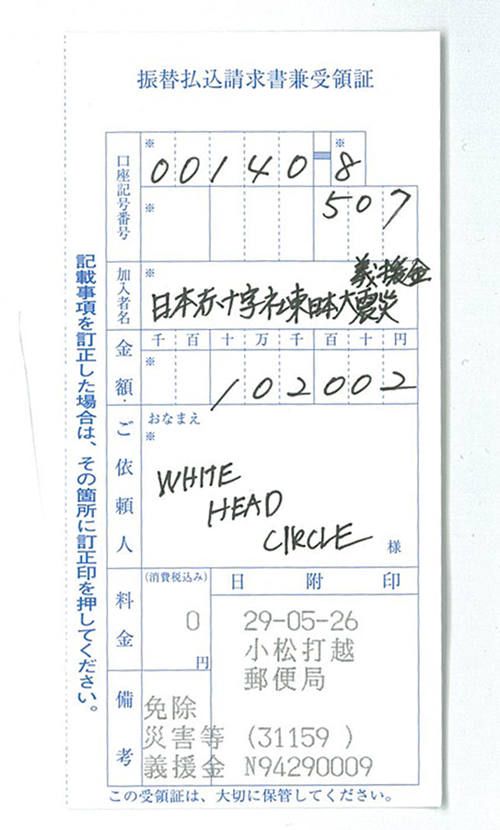 振替払込請求書兼受領証
口座記号番号
※
※
00140-8
※
507
加入者名
※
義援金
日本赤十字社東日本大震災
金額
千百十万千百十円
※
102002
ご依頼人
おなまえ
※
WHITE
HEAD
CIRCLE
様
料金
(消費税込み)
0
円
日附印
29-05-26
小松打越
郵便局
備考
免除
災害等 (31159 )
義援金 N94290009
この受領証は、大切に保管してください。
記載事項を訂正した場合は、その箇所に訂正印を押してください。